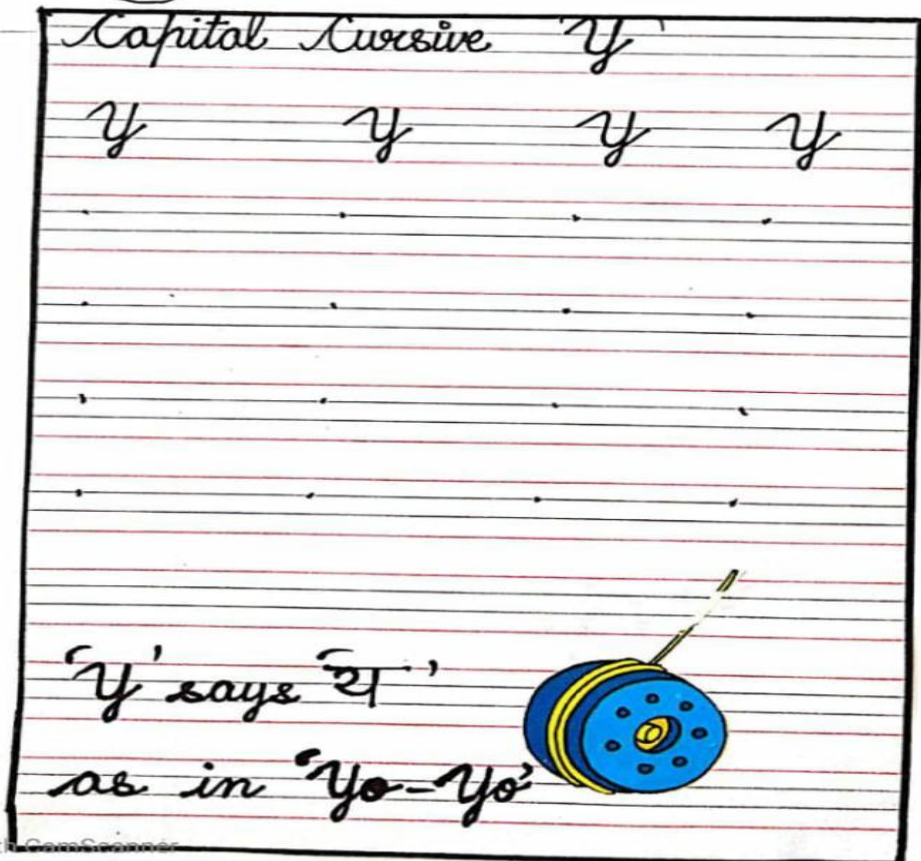 Capital Cursive 'Y'
Y Y Y Y
'Y' says 'य'
as in 'Yo-Yo'
CamScanner